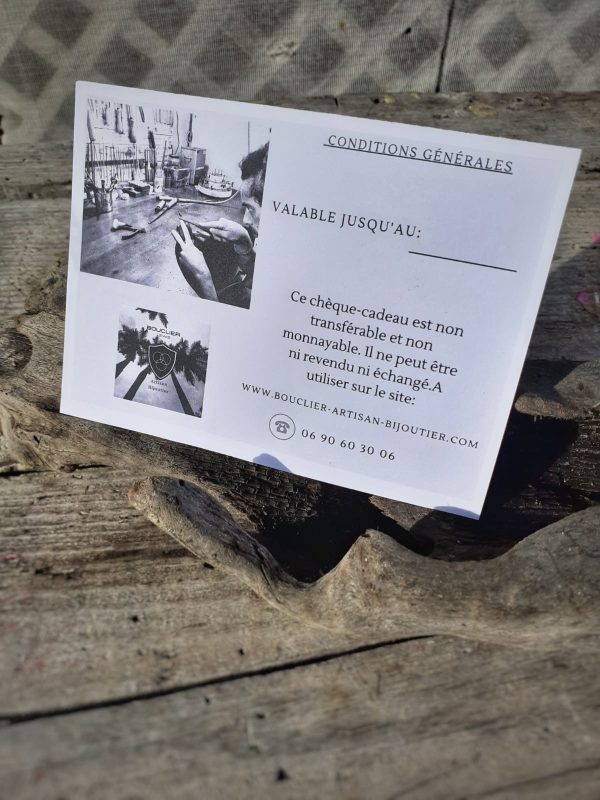 CONDITIONS GÉNÉRALES
VALABLE JUSQU'AU:
Ce chèque-cadeau est non
transférable et non
monnayable. Il ne peut être
ni revendu ni échangé.A
utiliser sur le site:
WWW.BOUCLIER-ARTISAN-BIJOUTIER.COM
06 90 60 30 06
BOUCLIER
Artisan
Bijoutier